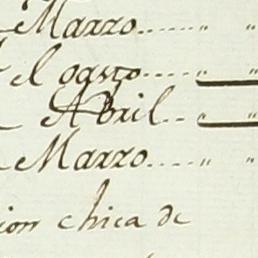 Marzo..... " "
el gasto.... "
Abril.. "
Marzo..... " "
ion chica de